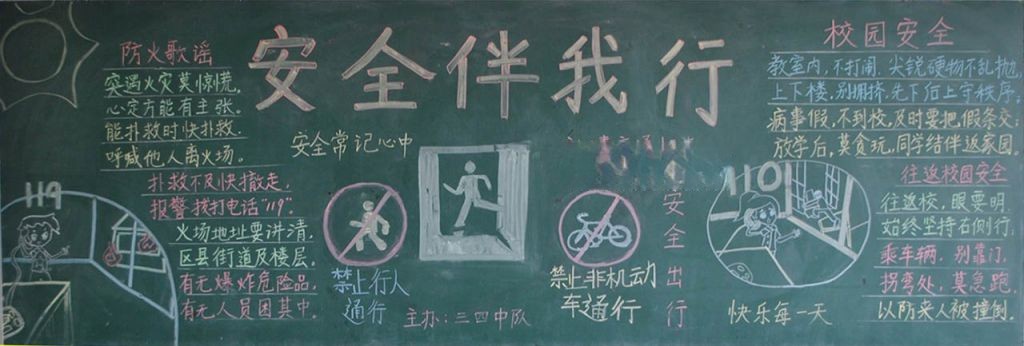 安全伴我行
防火歌谣
突遇火灾莫惊慌,
心定方能有主张。
能扑救时快扑救.
呼喊他人离火场。
扑救不及快撤走,
报警拨打电话"119".
火场地址要讲清,
区县街道及楼层。
有无爆炸危险品,
有无人员困其中.
119
安全常记心中
禁止行人
通行
主办:三四中队
禁止非机动
车通行
安全出行
110
快乐每一天
校园安全
教室内,不打闹.尖锐硬物不乱抛,
上下楼.别拥挤.先下后上守秩序,
病事假,不到校,及时要把假条交;
放学后,莫贪玩..同学结伴返家园.
往返校园安全
往返校,眼要明.
始终坚持右侧行;
乘车辆,别靠门,
拐弯处,莫急跑,
以防来人被撞倒.